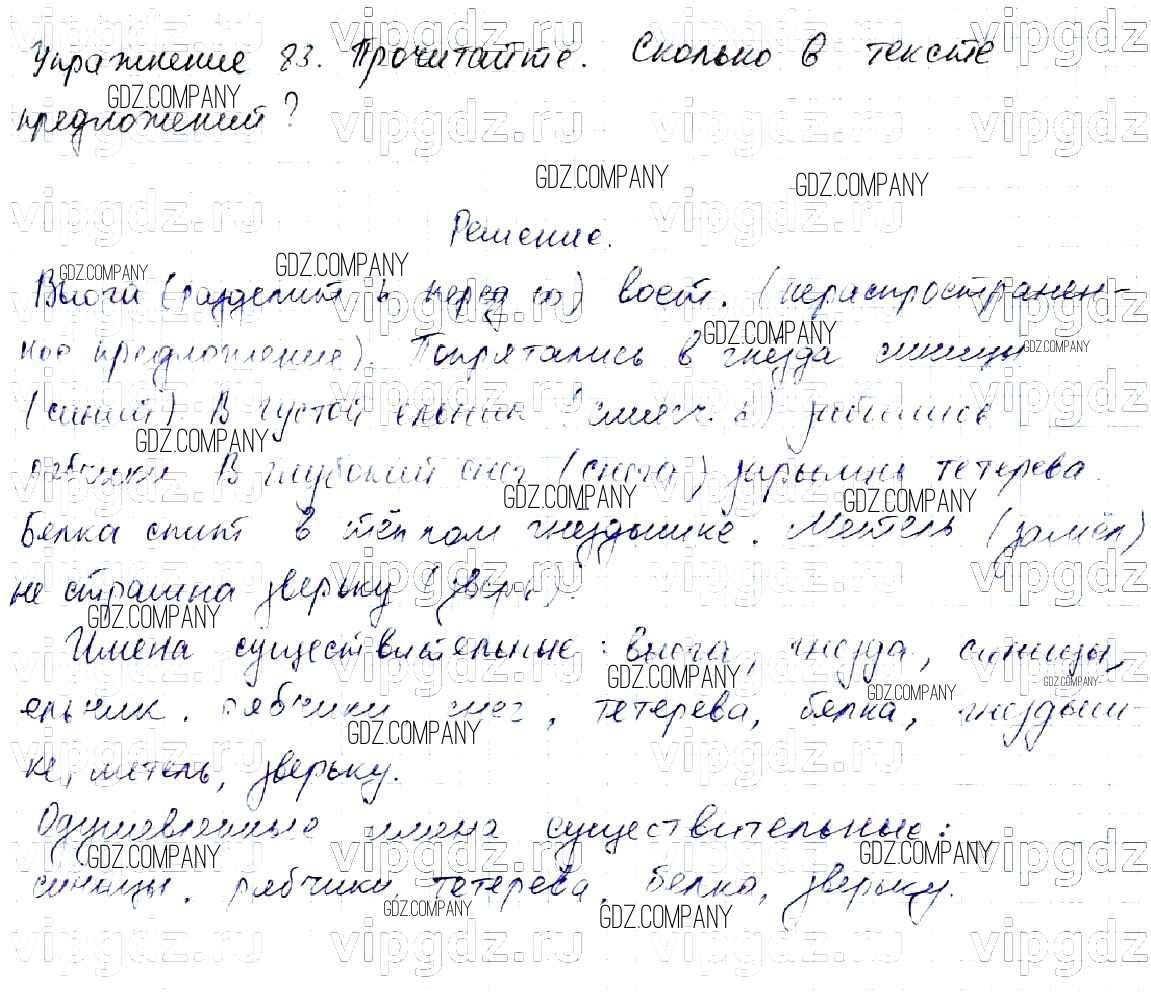 Упражнение 83. Прочитайте. Сколько в тексте
предложений?
Решение.
Вьюга (разделит. ь перед ю) воет. (нераспространен-
ное предложение). Попрятались в гнезда синицы
(синий) В густой ельник (смягч. ь) забились
рябчики В глубокий снег (снега) зарылись тетерева.
Белка спит в тёплом гнёздышке. Метель (замёл)
не страшна зверьку (зверь).
Имена существительные: вьюга, гнезда, синицы,
ельник, рябчики снег, тетерева, белка, гнездыш-
ке, метель, зверьку.
Одушевленные имена существительные:
синицы, рябчики, тетерева, белка, зверьку.